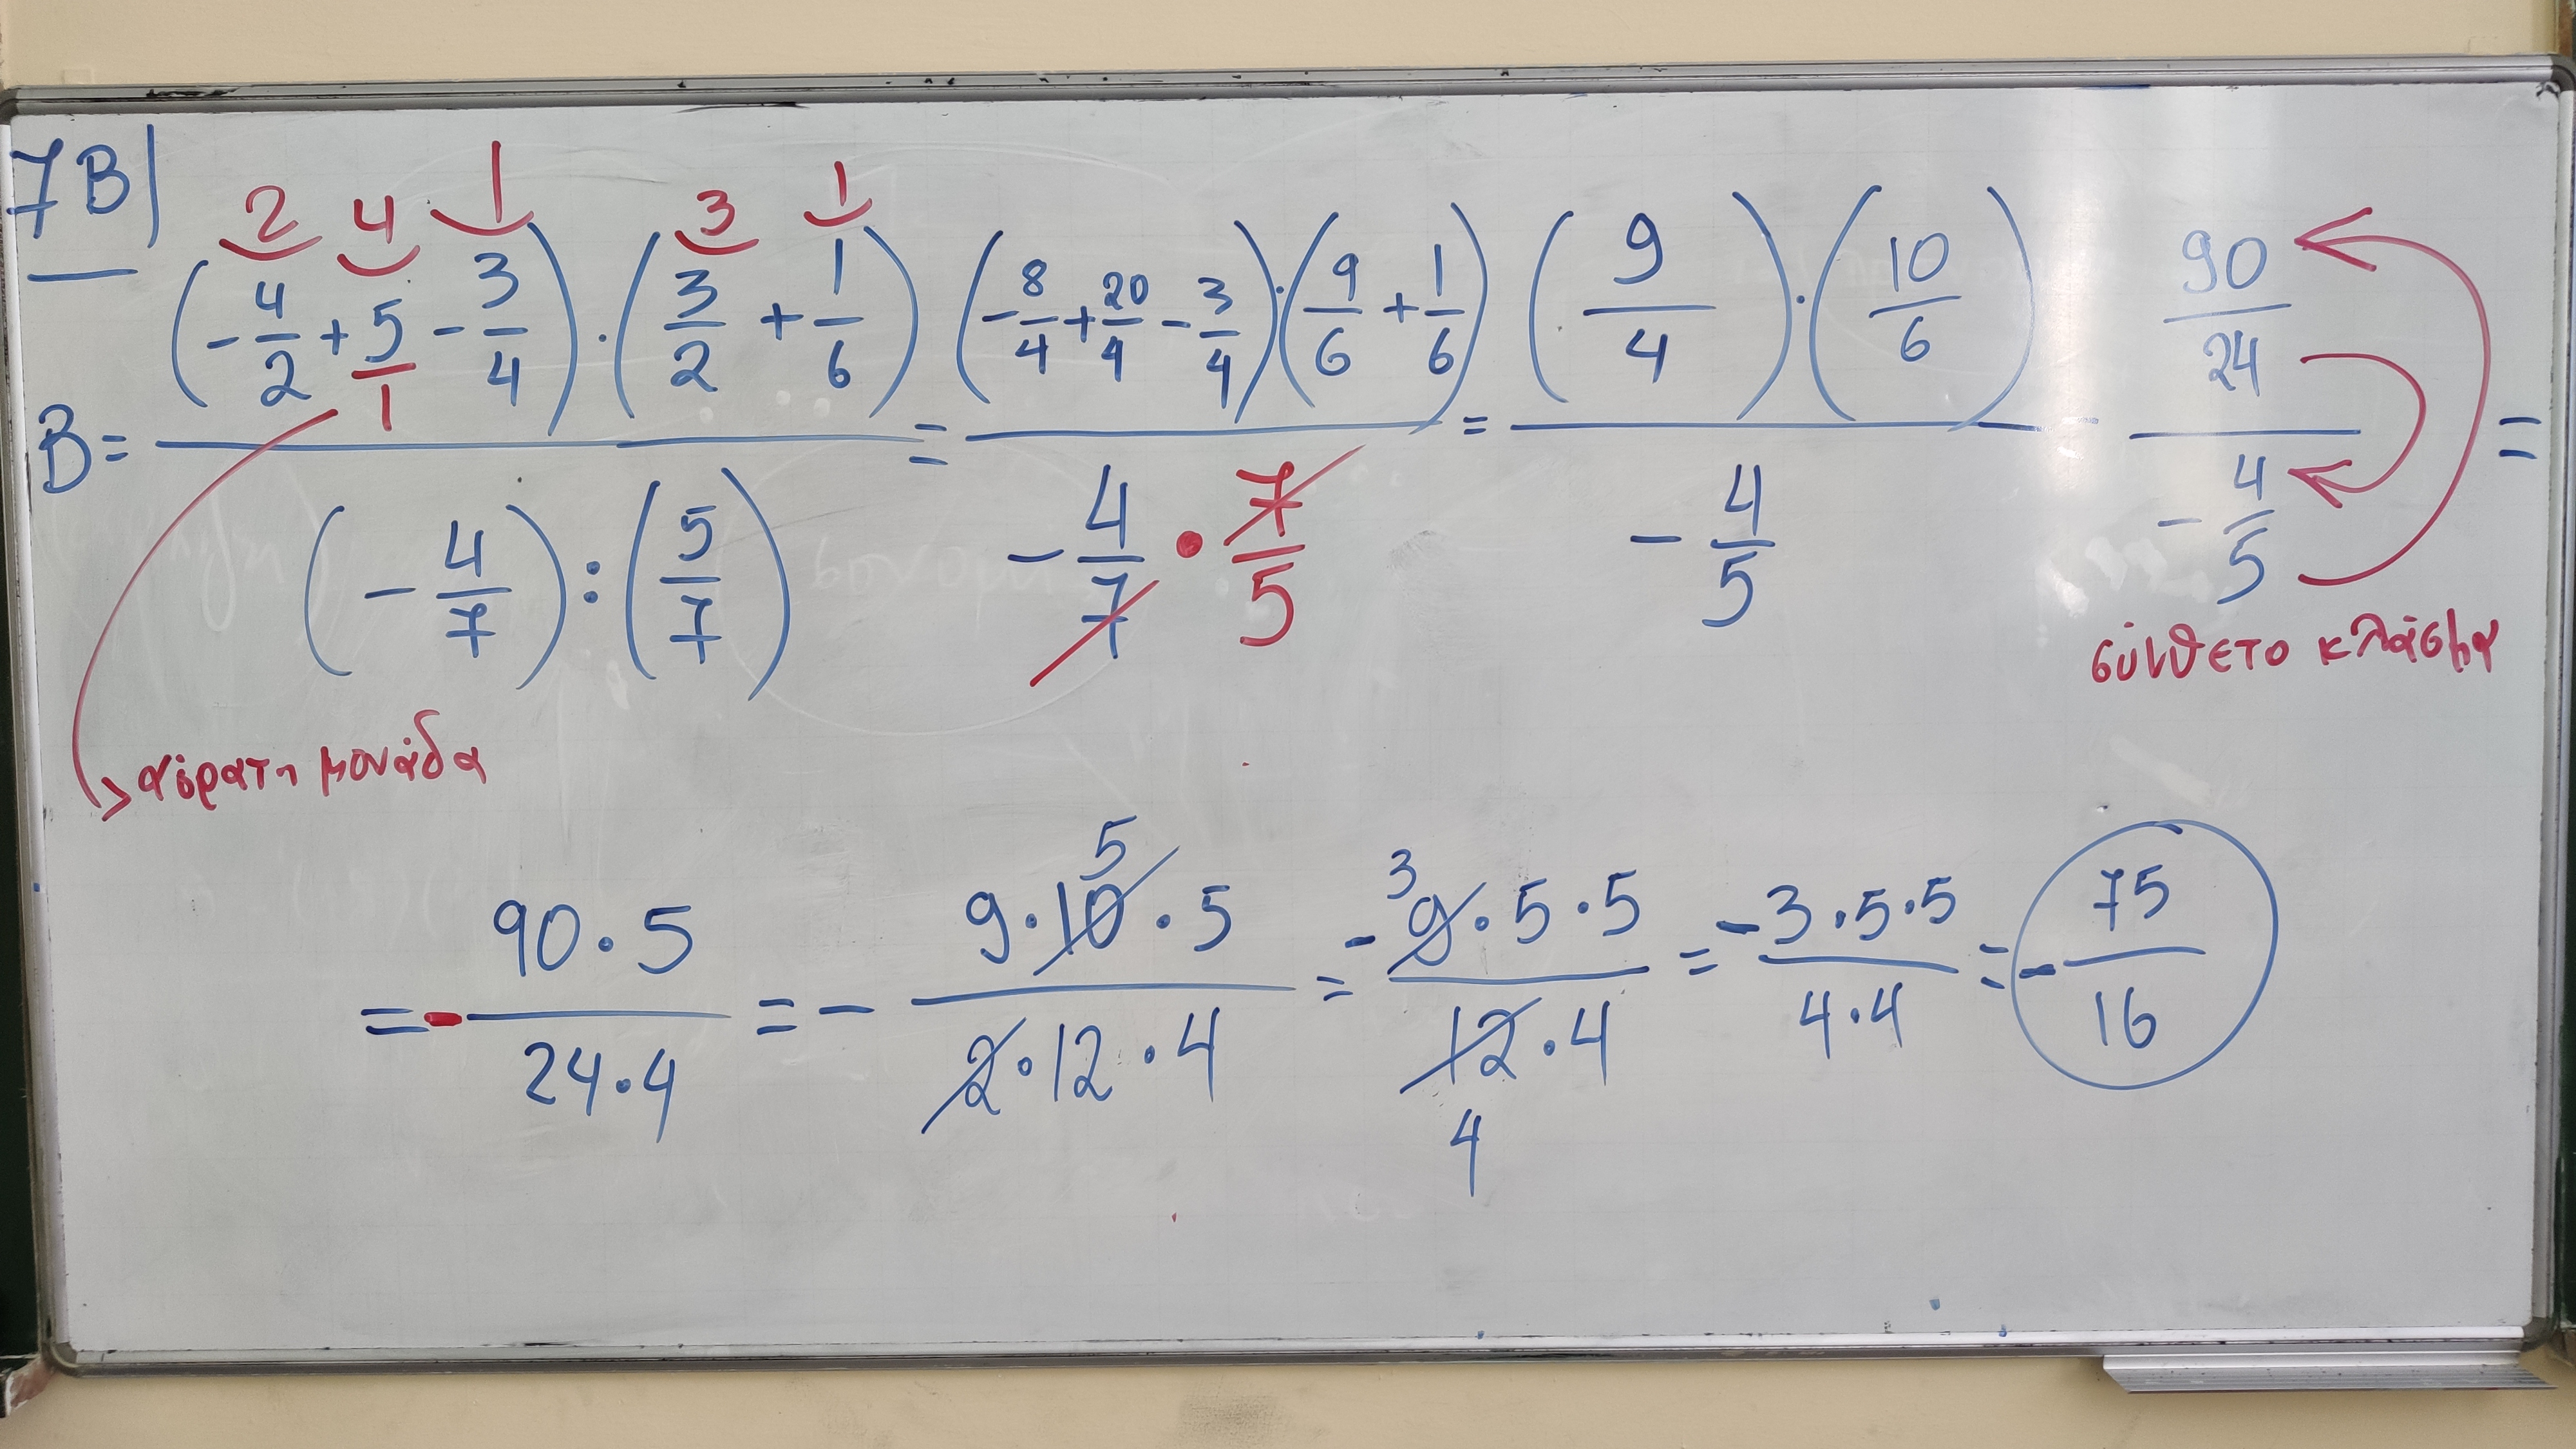 7B
B = \frac{\left(-\frac{\overset{2}{4}}{2}+\frac{\overset{4}{5}}{1}-\frac{\overset{1}{3}}{4}\right)\cdot\left(\frac{\overset{3}{3}}{2}+\frac{\overset{1}{1}}{6}\right)}{\left(-\frac{4}{7}\right):\left(\frac{5}{7}\right)} = \frac{\left(-\frac{8}{4}+\frac{20}{4}-\frac{3}{4}\right)\cdot\left(\frac{9}{6}+\frac{1}{6}\right)}{-\frac{4}{\cancel{7}}\cdot\frac{\cancel{7}}{5}} = \frac{\left(\frac{9}{4}\right)\cdot\left(\frac{10}{6}\right)}{-\frac{4}{5}} = \frac{\frac{90}{24}}{-\frac{4}{5}} =
σύνθετο κλάσμα
αόρατη μονάδα
= -\frac{90\cdot5}{24\cdot4} = -\frac{9\cdot\overset{5}{\cancel{10}}\cdot5}{\cancel{2}\cdot12\cdot4} = -\frac{\overset{3}{\cancel{9}}\cdot5\cdot5}{\underset{4}{\cancel{12}}\cdot4} = -\frac{3\cdot5\cdot5}{4\cdot4} = -\frac{75}{16}